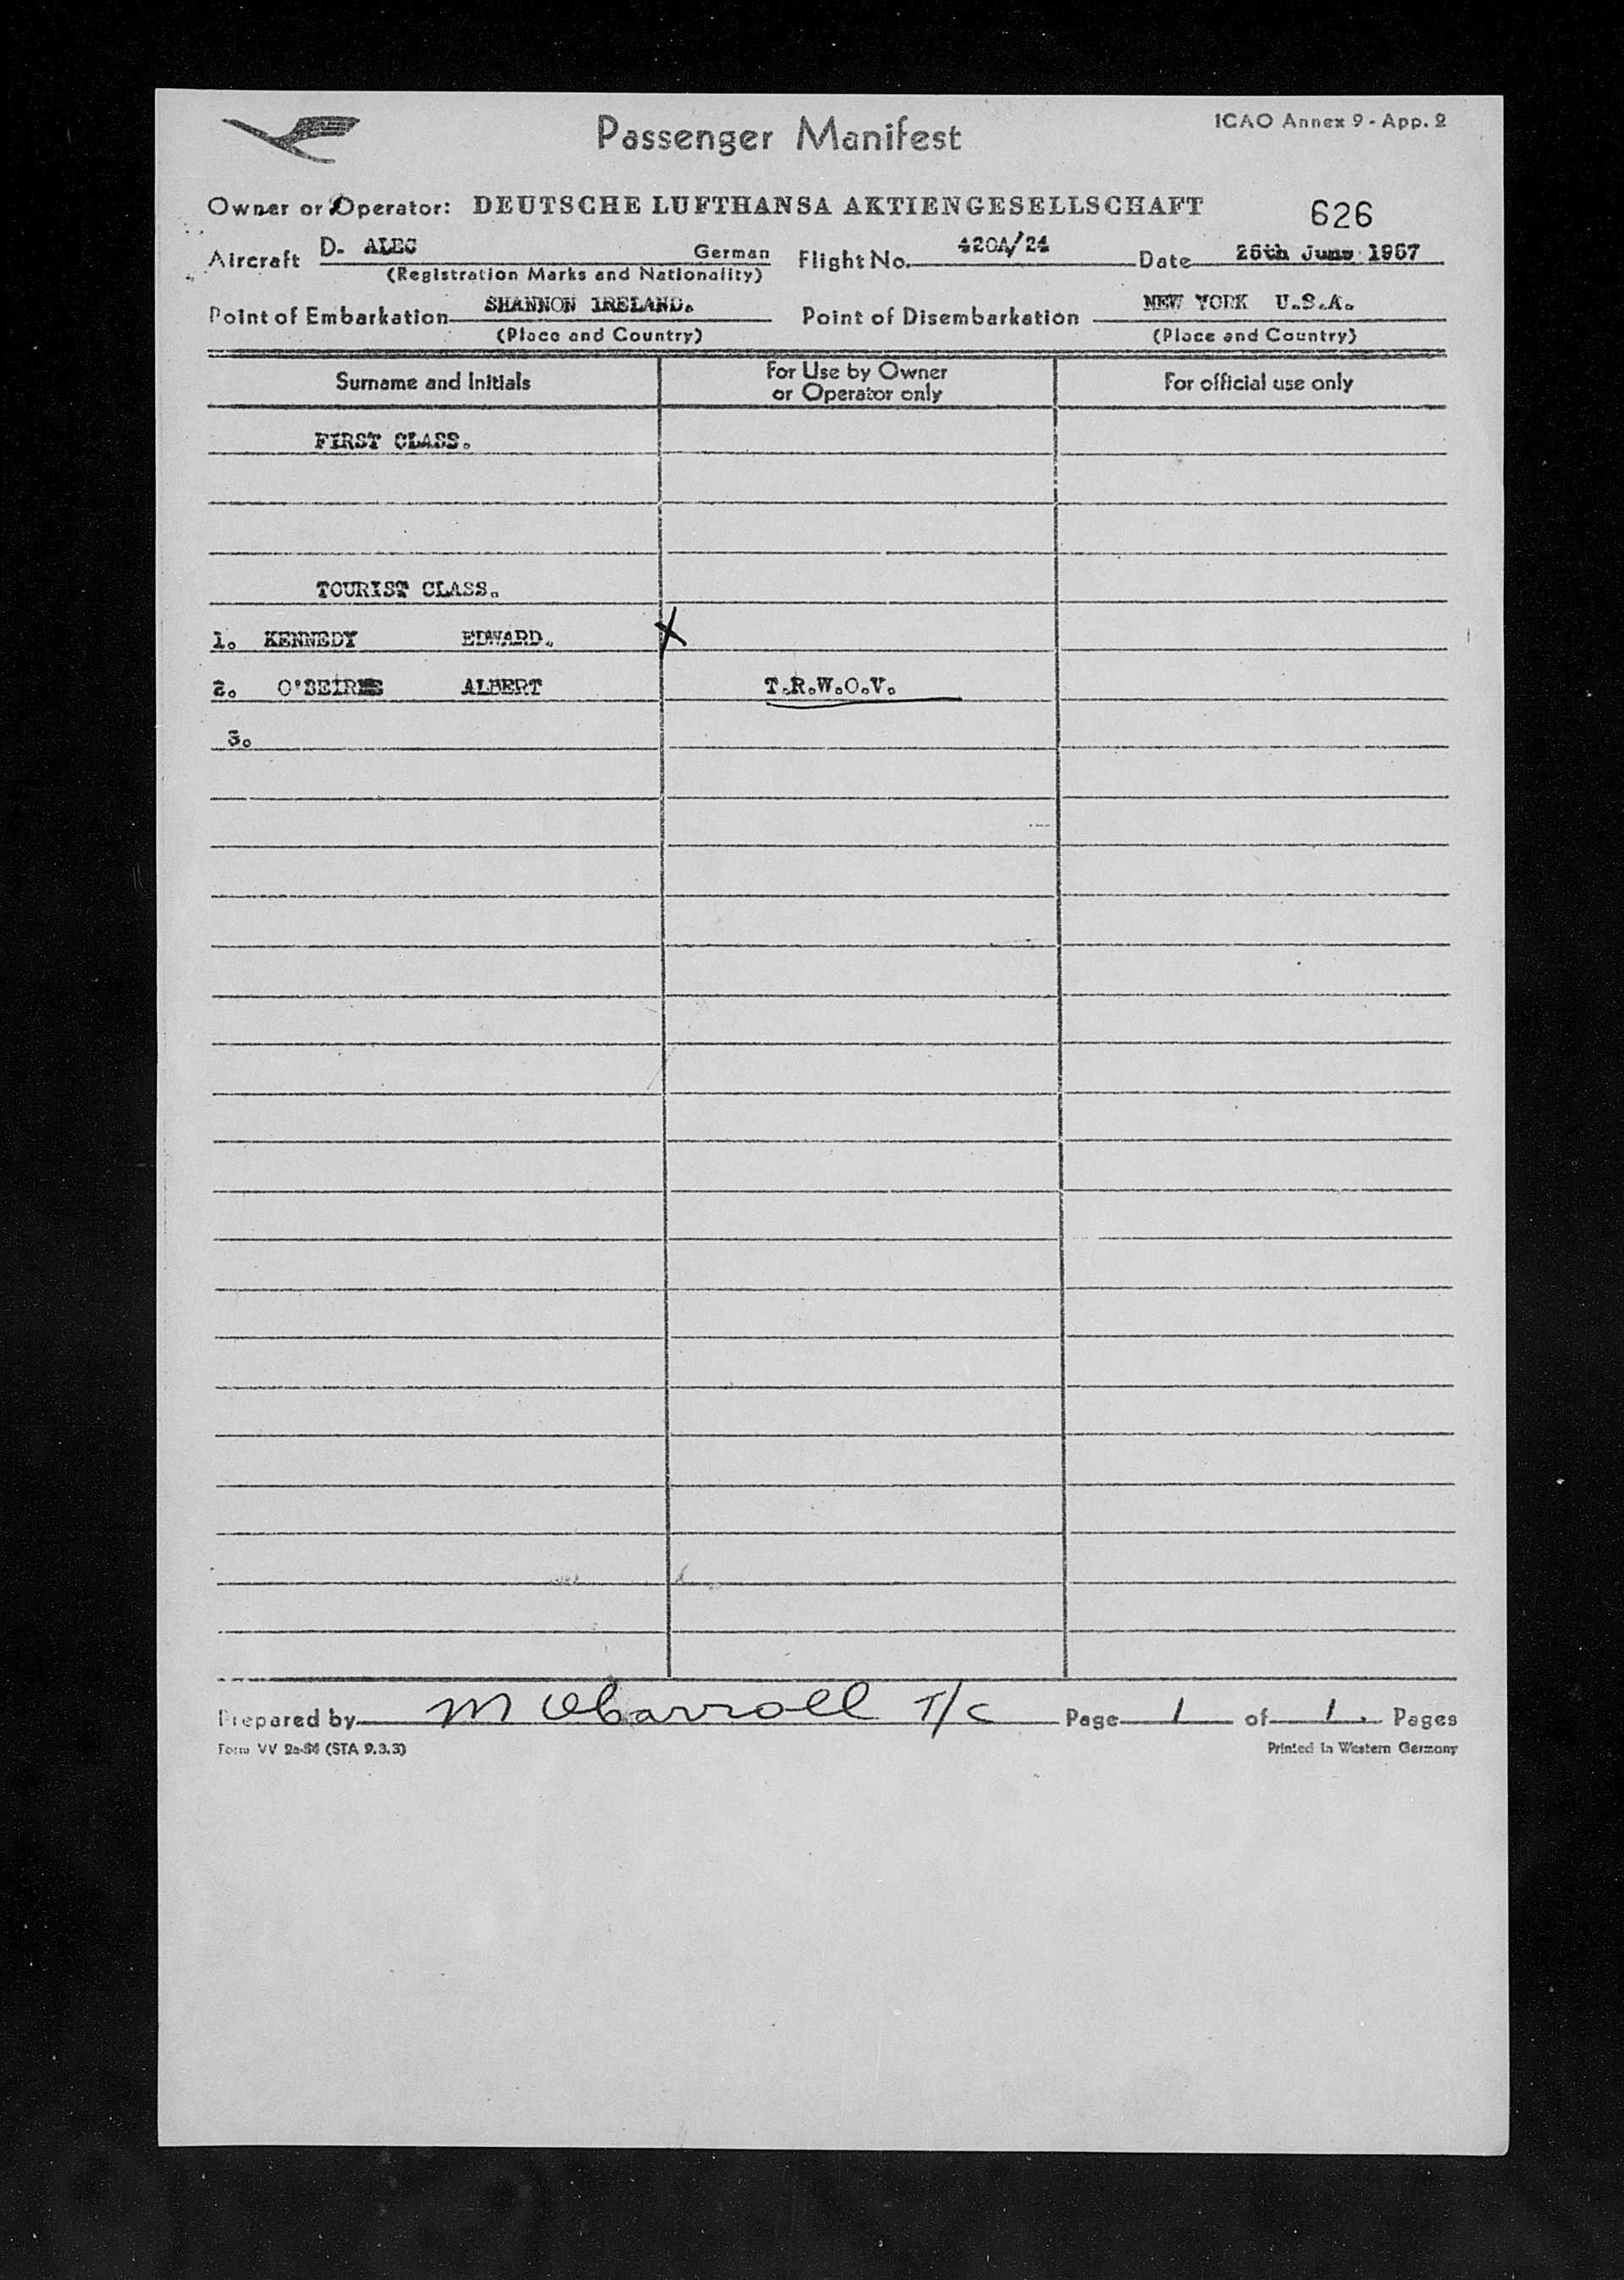 Passenger Manifest
ICAO Annex 9 - App. 2
Owner or Operator: DEUTSCHE LUFTHANSA AKTIENGESELLSCHAFT
626
Aircraft D- ALEC German Flight No. 420A/24 Date 25th June 1957
(Registration Marks and Nationality)
Point of Embarkation SHANNON IRELAND. Point of Disembarkation NEW YORK U.S.A.
(Place and Country) (Place and Country)
Surname and Initials For Use by Owner or Operator only For official use only
FIRST CLASS.
TOURIST CLASS.
1. KENNEDY EDWARD. X
2. O'BEIRNE ALBERT T.R.W.O.V.
3.
Prepared by M OCarroll T/C Page 1 of 1. Pages
Form VV 2a-54 (STA 9.3.3) Printed in Western Germany